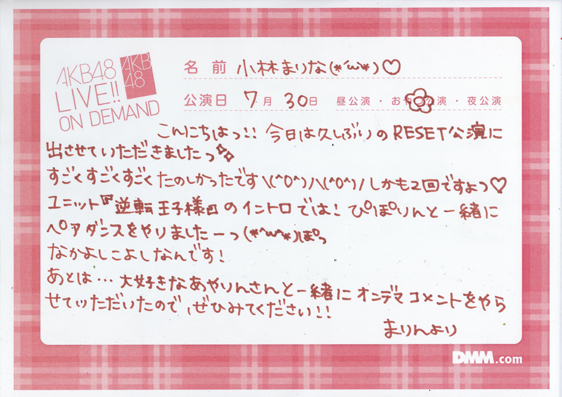 AKB48
LIVE!!
ON DEMAND
AKB
48
名前 小林まりな(*´ω`*)♡
公演日 7月30日 昼公演・おやつ公演・夜公演
こんにちはっ!! 今日は久しぶりのRESET公演に
出させていただきましたっ✨
すごくすごくすごくたのしかったです\(^o^)/\(^o^)/しかも2回ですよっ♡
ユニット『逆転王子様』のイントロでは!ぴぽぽりんと一緒に
ペアダンスをやりましたーっ(*^w^*)ぽっ
なかよしこよしなんです!
あとは…大好きなあやりんさんと一緒にオンデマコメントをやら
せていただいたので、ぜひみてください!!
まりんより
DMM.com